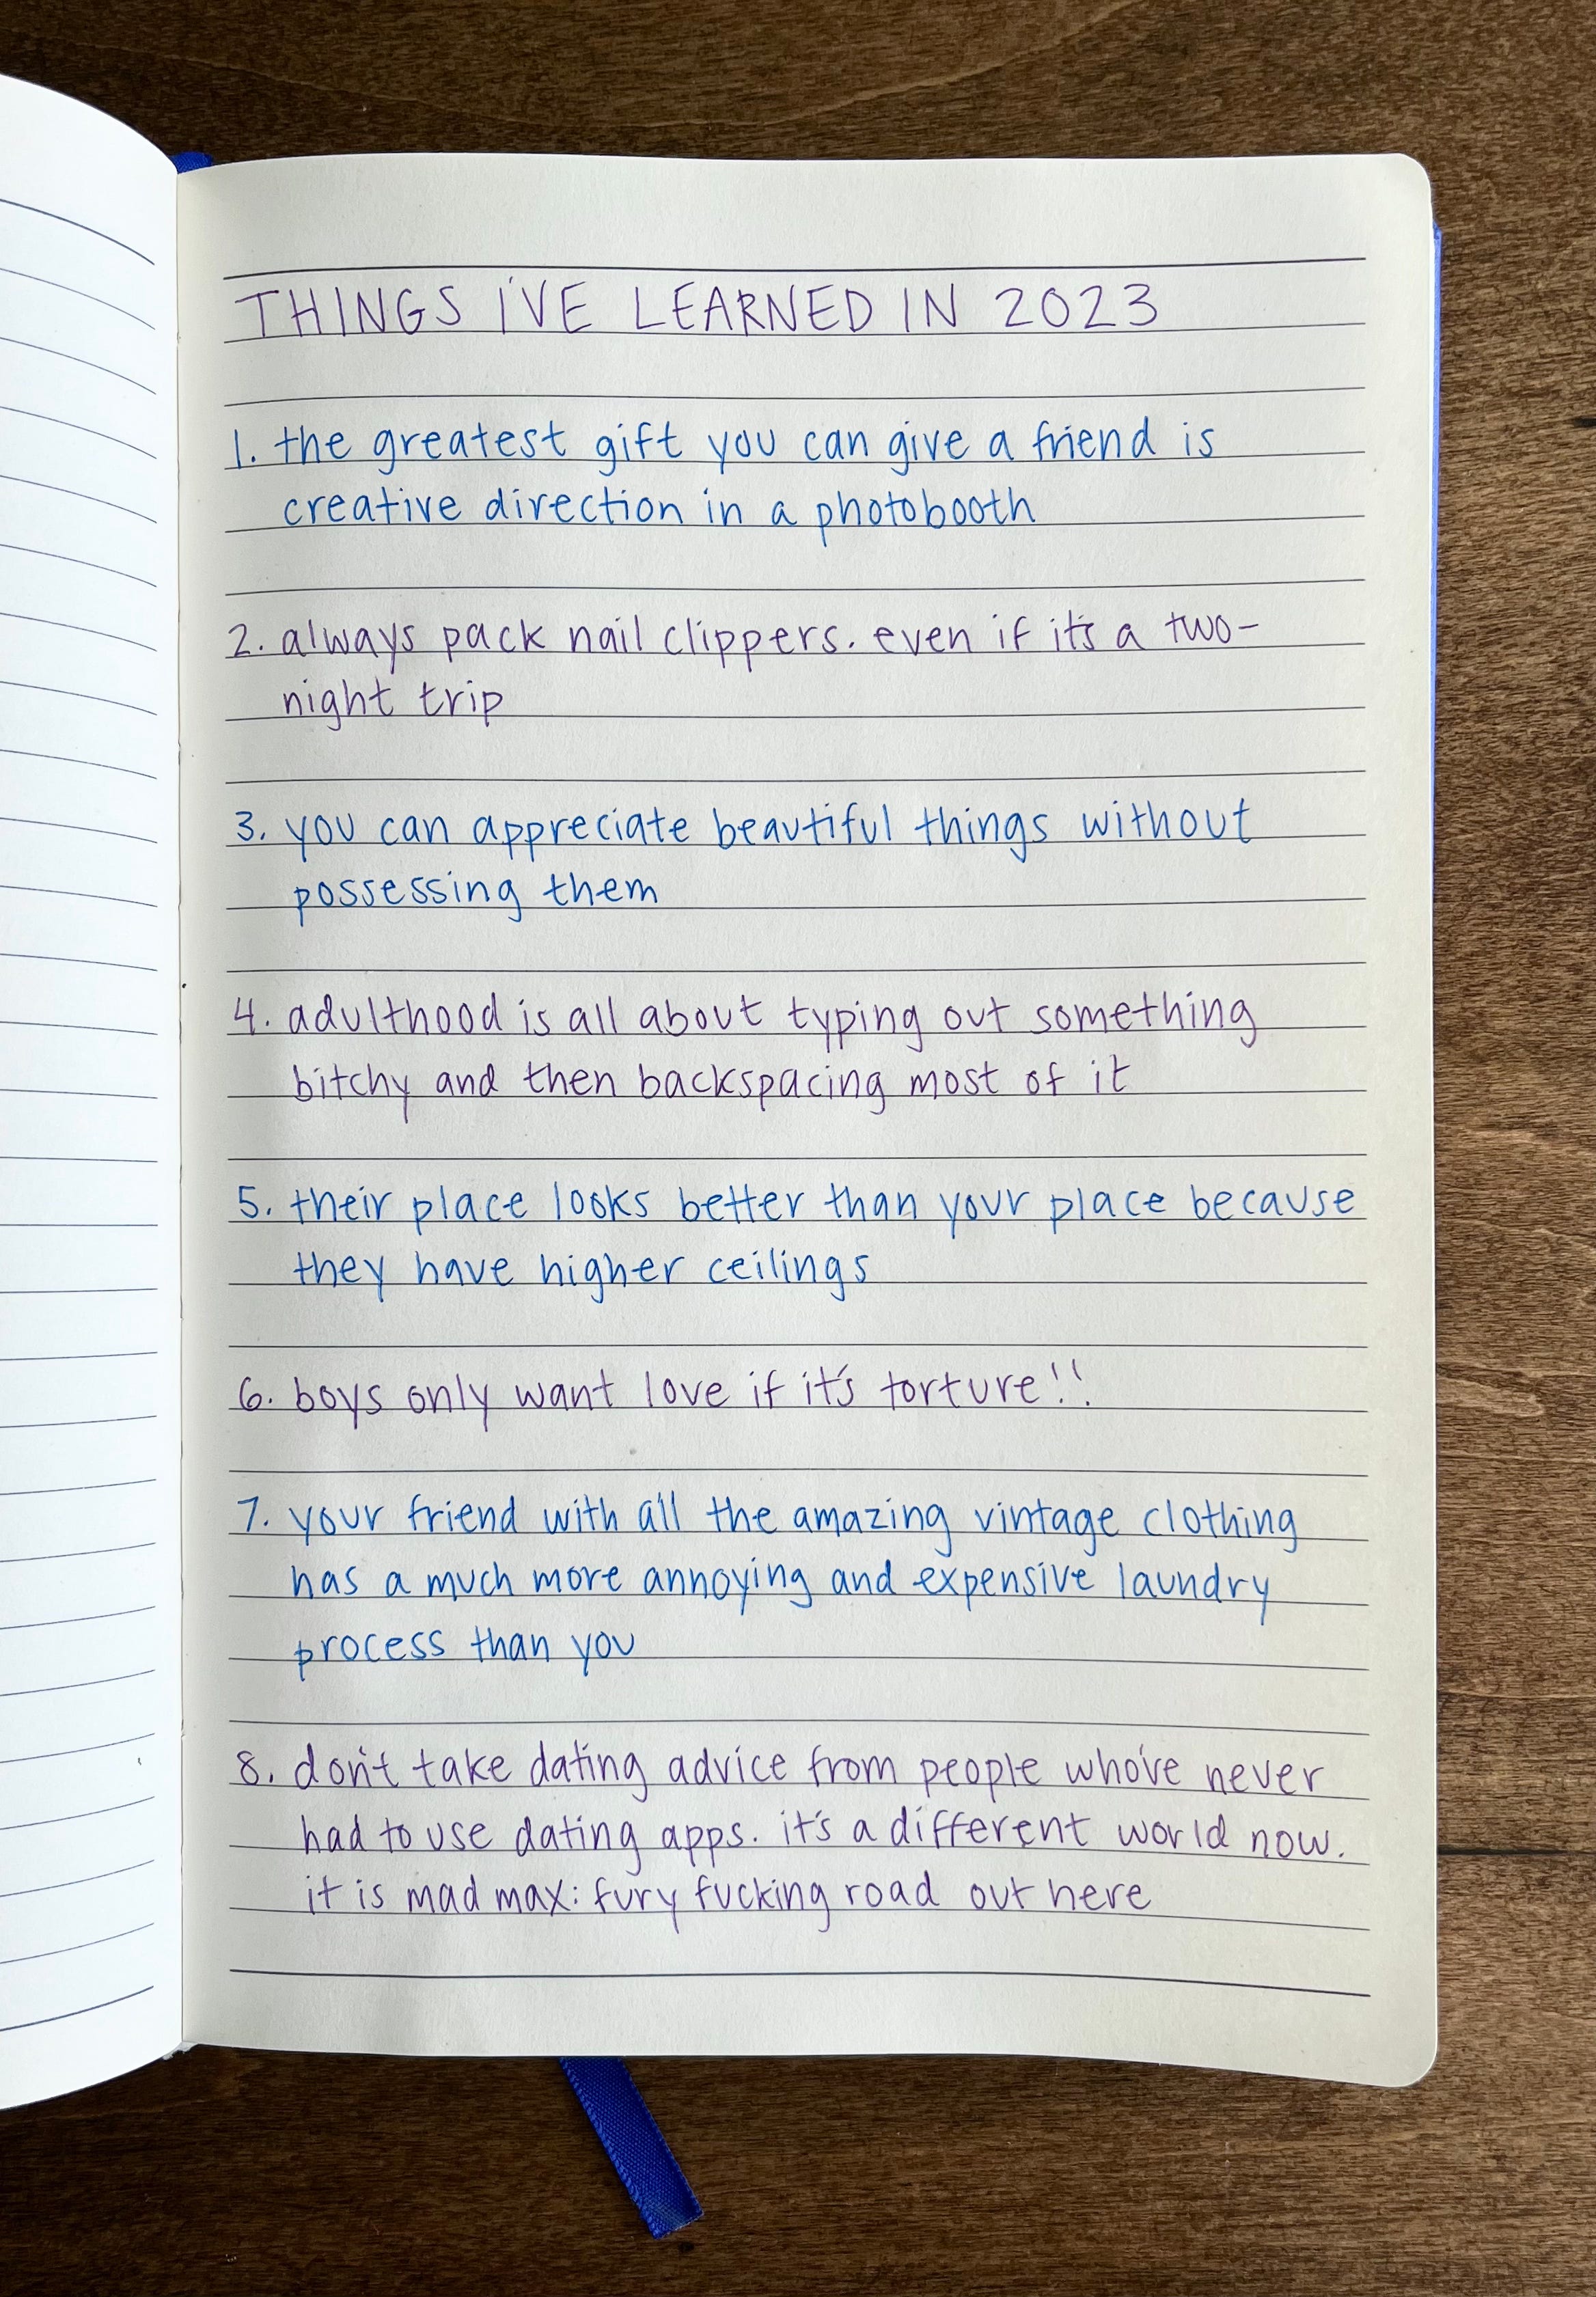 THINGS I'VE LEARNED IN 2023
1. the greatest gift you can give a friend is
creative direction in a photobooth
2. always pack nail clippers. even if it's a two-
night trip
3. you can appreciate beautiful things without
possessing them
4. adulthood is all about typing out something
bitchy and then backspacing most of it
5. their place looks better than your place because
they have higher ceilings
6. boys only want love if it's torture!!
7. your friend with all the amazing vintage clothing
has a much more annoying and expensive laundry
process than you
8. don't take dating advice from people who've never
had to use dating apps. it's a different world now.
it is mad max: fury fucking road out here